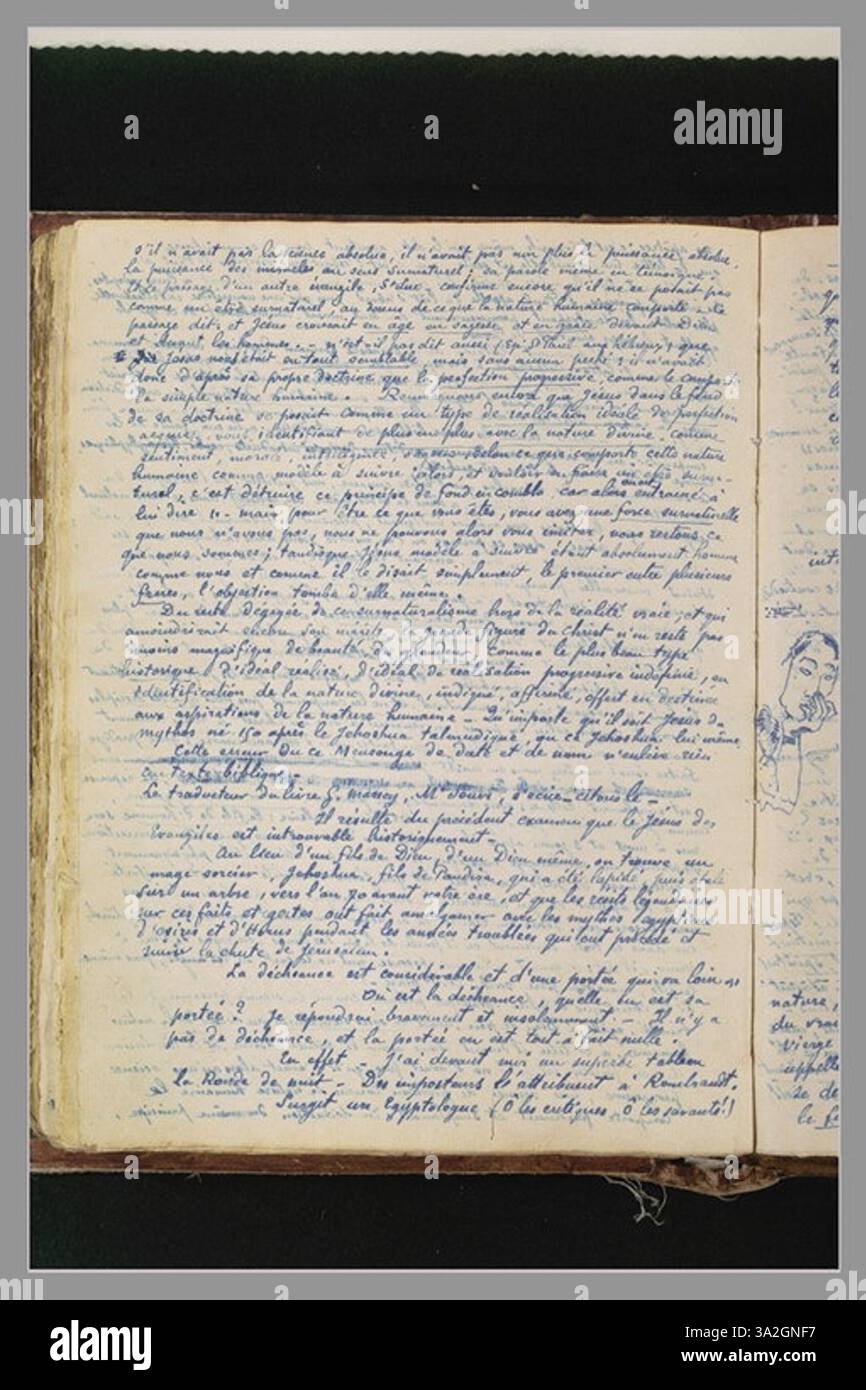 s'il n'avait pas la science absolue, il n'avait pas non plus la puissance absolue,
la puissance des miracles au sens surnaturel; sa parole même en témoigne.
Et ce passage d'un autre évangile, St Luc - confirme encore qu'il ne se posait pas
comme un être surnaturel, au dessus de ce que la nature humaine comporte - Le
passage dit: et Jésus croissait en âge en sagesse et en grâce devant Dieu
et devant les hommes. - n'est-il pas dit aussi (Ep. St Paul aux hébreux) que
Jésus nous était en tout semblable, mais sans aucun péché; il n'avait
donc d'après sa propre doctrine que la perfection progressive, comme le comporte
la simple nature humaine. Remarquons encore que Jésus dans le fond
de sa doctrine se posait comme un type de réalisation idéale de perfection
nous identifiant de plus en plus avec la nature divine, comme
sentiment, morale, intelligence, sagesse selon ce que comporte cette nature
humaine comme modèle à suivre alors, et vouloir en faire un être surna-
turel, c'est détruire ce principe de fond en comble car alors entraîné à
lui dire - mais pour être ce que vous êtes, vous avez une force surnaturelle
que nous n'avons pas, nous ne pouvons alors vous imiter, nous restons ce
que nous sommes; tandis que Jésus modèle à suivre étant absolument homme
comme nous et comme il le disait simplement, le premier entre plusieurs
frères, l'objection tombe d'elle même.
Du reste dégagée de ce surnaturalisme hors de la réalité vraie, et qui
amoindrirait encore son mérite, la grande figure du Christ n'en reste pas
moins magnifique de beauté, de splendeur, comme le plus beau type
historique d'idéal réalisé, d'idéal de réalisation progressive indéfinie, en
identification de la nature divine, indiqué, affirmé, offert en doctrine
aux aspirations de la nature humaine - Qu'importe qu'il soit Jésus du
mythos né 150 après le Jehoshua talmudique ou ce Jehoshua lui même
Cette erreur ou ce mensonge de date et de nom n'enlève rien
au texte biblique -
Le traducteur du livre G. Massey, Mr Soury, s'écrie - citons le -
Il résulte du précédent examen que le Jésus des
Evangiles est introuvable historiquement -
Au lieu d'un fils de Dieu, d'un Dieu même, on trouve un
mage sorcier, Jehoshua, fils de Pandira, qui a été lapidé, puis étalé
sur un arbre, vers l'an 70 avant notre ère, et que les récits légendaires
sur ces faits et gestes ont fait amalgamer avec les mythes égyptiens
d'Osiris et d'Horus pendant les années troublées qui ont précédé et
suivi la chute de Jérusalem.
La déchéance est considérable et d'une portée qui va loin "
Où est la déchéance, quelle en est sa
portée? Je répondrai bravement et insolemment - Il n'y a
pas de déchéance, et la portée en est tout à fait nulle.
En effet - J'ai devant moi un superbe tableau
la Ronde de nuit - Des imposteurs l'attribuent à Rembrandt.
Surgit un Egyptologue (Ô les critiques, Ô les savants!)
nature,
du vrai
vierge
appelle
se de
alamy
Image ID: 3A2GNF7
www.alamy.com